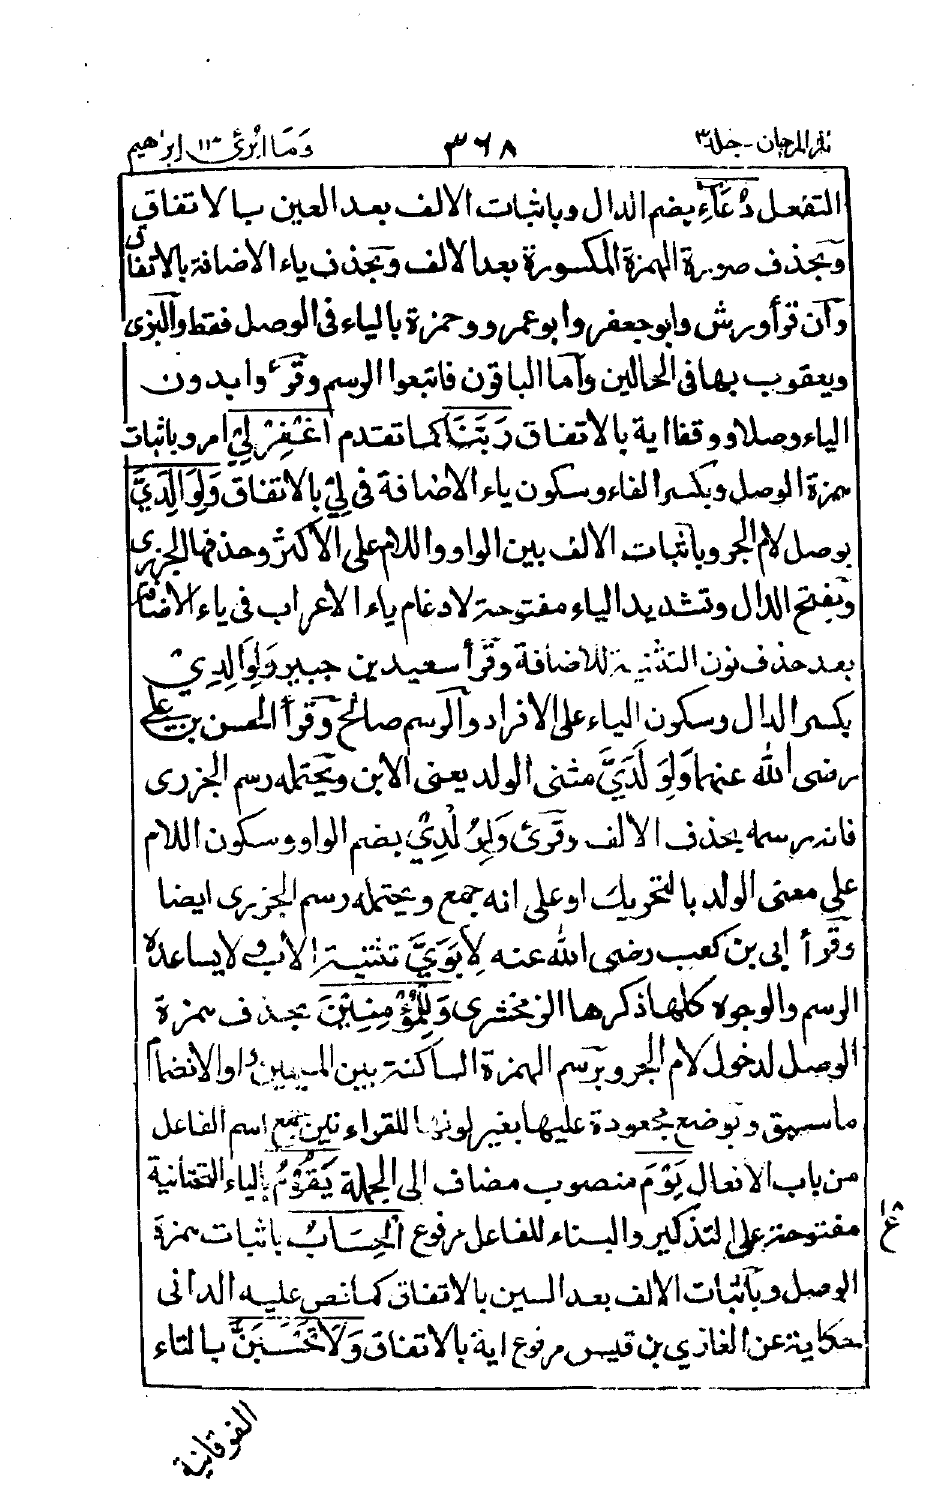 نثر المرجان - جلد ٣
٣٦٨
وَمَا اُبرئ ١٣ اِبرٰهيم
التفعل دُعَآءِ بضم الدال وباثبات الالف بعد العين بالاتفاق
وبحذف صورة الهمزة المكسورة بعد الالف وبحذف ياء الاضافة بالاتفاق
وان قرأ ورش وابو جعفر وابو عمرو وحمزة بالياء فى الوصل فقط والبزى
ويعقوب بها فى الحالين واما الباقون فاتبعوا الرسم وقرءوا بدون
الياء وصلا ووقفا اية بالاتفاق رَبَّنَا كما تقدم اغْفِرْ لِيْ امر وباثبات
همزة الوصل وبكسر الفاء وسكون ياء الاضافة فى لِيْ بالاتفاق وَلِوَالِدَيَّ
بوصل لام الجر وباثبات الالف بين الواو واللام على الاكثر وحذفها الجزرى
وبفتح الدال وتشديد الياء مفتوحة لادغام ياء الاعراب فى ياء الاضافة
بعد حذف نون التثنية للاضافة وقرأ سعيد بن جبير وَلِوَالِدِيْ
بكسر الدال وسكون الياء على الافراد والرسم صالح وقرأ الحسن بن علي
رضى الله عنهما وَلِوَلَدَيَّ مثنى الولد يعنى الابن ويحتمله رسم الجزرى
فانه رسمه بحذف الالف وقرئ وَلِوُلْدِيْ بضم الواو وسكون اللام
على معنى الولد بالتحريك او على انه جمع ويحتمله رسم الجزرى ايضا
وقرأ ابى بن كعب رضى الله عنه لِاَبَوَيَّ تثنية الاب ولا يساعده
الرسم والوجوه كلها ذكرها الزمخشرى وَلِلْمُؤْمِنِيْنَ بحذف همزة
الوصل لدخول لام الجر وبرسم الهمزة الساكنة بين الميمين واوا لانضمام
ما سبق وتوضع مجعودة عليها بغير لونها للقراءتين جمع اسم الفاعل
من باب الافعال يَوْمَ منصوب مضاف الى الجملة يَقُوْمُ بالياء التحتانية
مفتوحة على التذكير والبناء للفاعل مرفوع الْحِسَابُ باثبات همزة
الوصل وباثبات الالف بعد السين بالاتفاق كما نص عليه الدانى
حكاية عن الغازي بن قيس مرفوع اية بالاتفاق وَلَا تَحْسَبَنَّ بالتاء
الفوقانية